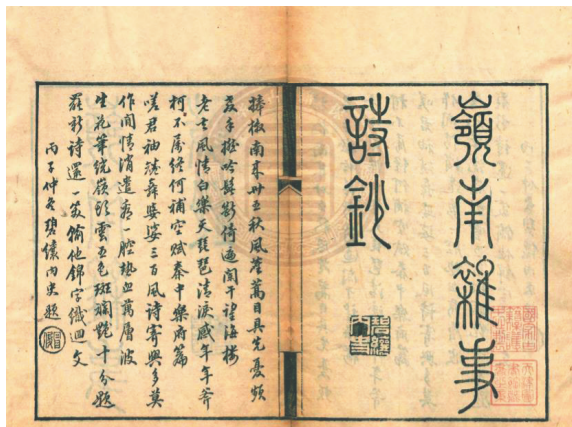 嶺南雜事
詩鈔
捧檄南來卅五秋風塵蒿目具先憂頻
叉手撚吟髭斷倚遍闌干望海樓
老去風情白樂天琵琶清淚感年年斧
柯不屑修何補空賦秦中樂府篇
嗟君袖儘舞婆娑三百風詩寄興多莫
作閒情消遣看一腔熱血萬層波
生花筆繞嶺頭雲五色斑斕艷十分題
罷新詩還一笑輸他錦字織迴文
丙子仲冬碧儂內史題